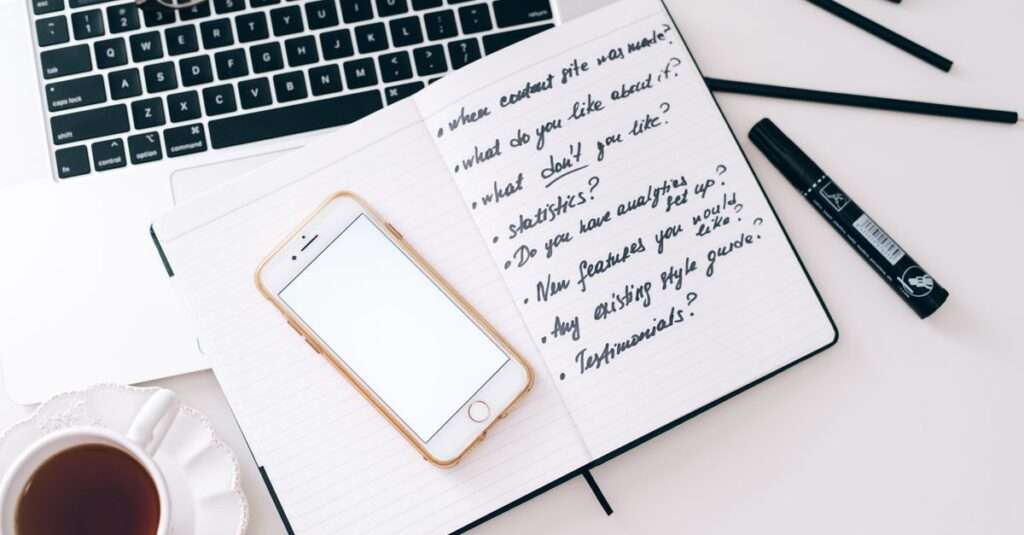 esc
W E R T Y U I O P
caps lock A S D F G H J K L
shift Z X C V B N M
fn control option command
• when content site was made?
• what do you like about it?
• what don't you like?
• statistics?
• Do you have analytics set up?
• New features you would like?
• Any existing style guide?
• Testimonials?